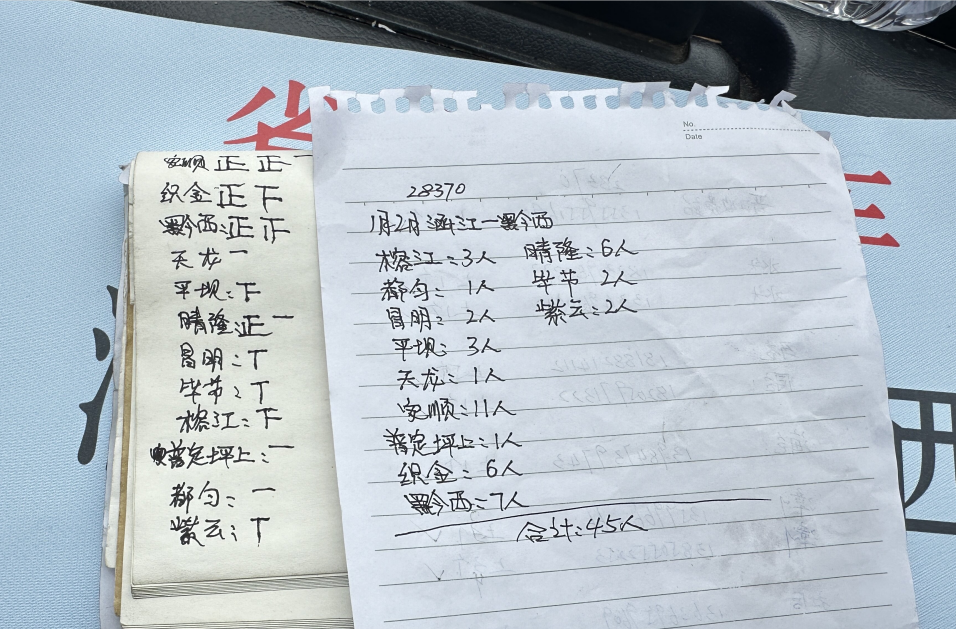 省
安顺 正 正 一
织金 正 下
黔西:正 下
天龙 一
平坝:下
晴隆:正 一
昌明:丅
毕节:丅
榕江:下
普定坪上:一
都匀:一
紫云:丅
No.
Date
28370
1月2月涵江一黔西
榕江:3人 晴隆:6人
都匀: 1人 毕节 2人
昌明: 2人 紫云:2人
平坝: 3人
天龙:1人
安顺:11人
普定坪上:1人
织金: 6人
黔西:7人
合计:45人